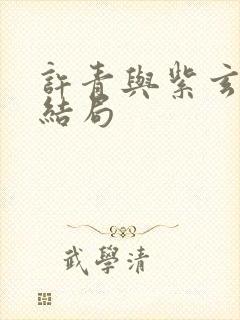 許青與紫玄
結局
武學清